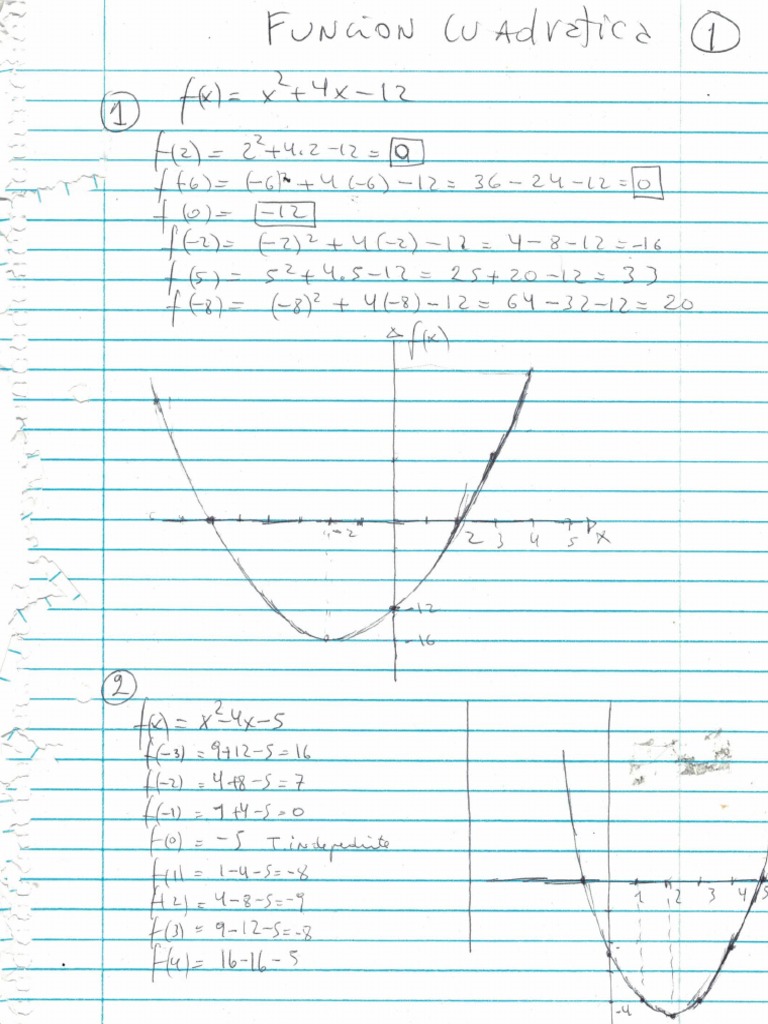 FUNCION CUAdratica 1
1 f(x) = x² + 4x - 12
f(2) = 2² + 4.2 - 12 = 0
f(-6) = (-6)² + 4(-6) - 12 = 36 - 24 - 12 = 0
f(0) = -12
f(-2) = (-2)² + 4(-2) - 12 = 4 - 8 - 12 = -16
f(5) = 5² + 4.5 - 12 = 25 + 20 - 12 = 33
f(-8) = (-8)² + 4(-8) - 12 = 64 - 32 - 12 = 20
f(x)
-2 2 3 4 5 x
-12
-16
2
f(x) = x² - 4x - 5
f(-3) = 9 + 12 - 5 = 16
f(-2) = 4 + 8 - 5 = 7
f(-1) = 1 + 4 - 5 = 0
f(0) = -5 T. independiente
f(1) = 1 - 4 - 5 = -8
f(2) = 4 - 8 - 5 = -9
f(3) = 9 - 12 - 5 = -8
f(4) = 16 - 16 - 5
1 2 3 4 5
-4